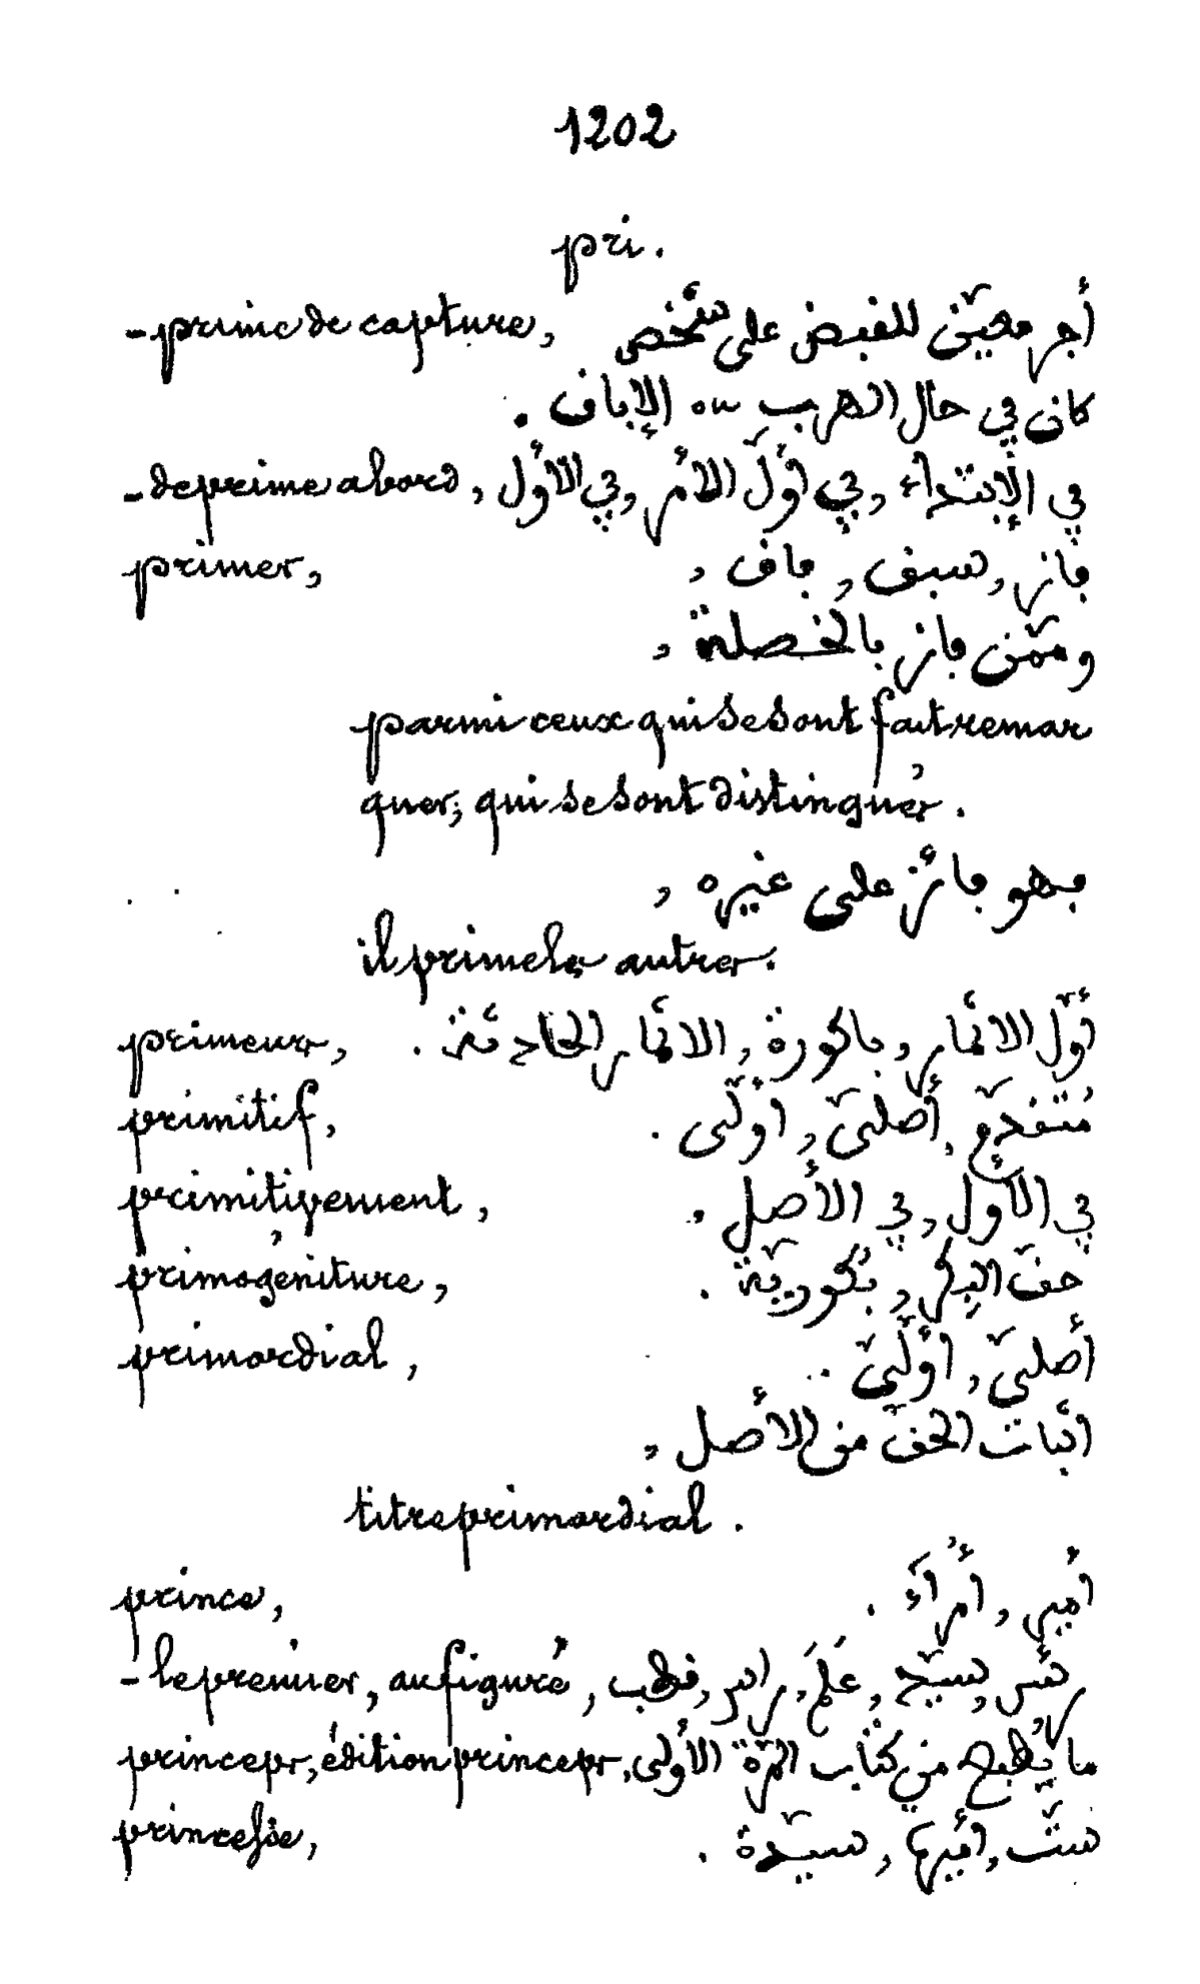 1202
pri.
- prime de capture, أجر معيّن للقبض على شخص
كان في حال الهرب ou الإباق .
- de prime abord, في الإبتداء, في أوّل الأمر, في الأوّل
primer, فاز, سبق, فاق ,
وممّن فاز بالخصلة ,
parmi ceux qui se sont fait remar
quer; qui se sont distingués.
فهو فائز على غيره ,
il prime les autres.
primeurs, أوّل الاثمار, باكورة, الاثمار .
primitif, مُتقدّم, أصليّ, أوّلى .
primitivement, في الأوّل, في الأصل .
primogéniture, حقّ البِكر, بُكوريّة .
primordial, أصليّ, أوّليّ .
اثبات الحقّ من الأصل ,
titre primordial .
prince, أمير, أُمراءَ .
- le premier, au figuré, سيّد, عَلَم, راس, قطب
princeps, édition princeps, ما يُطبع من كتاب المرّة الأولى
princesse, ستّ, سيّدة .